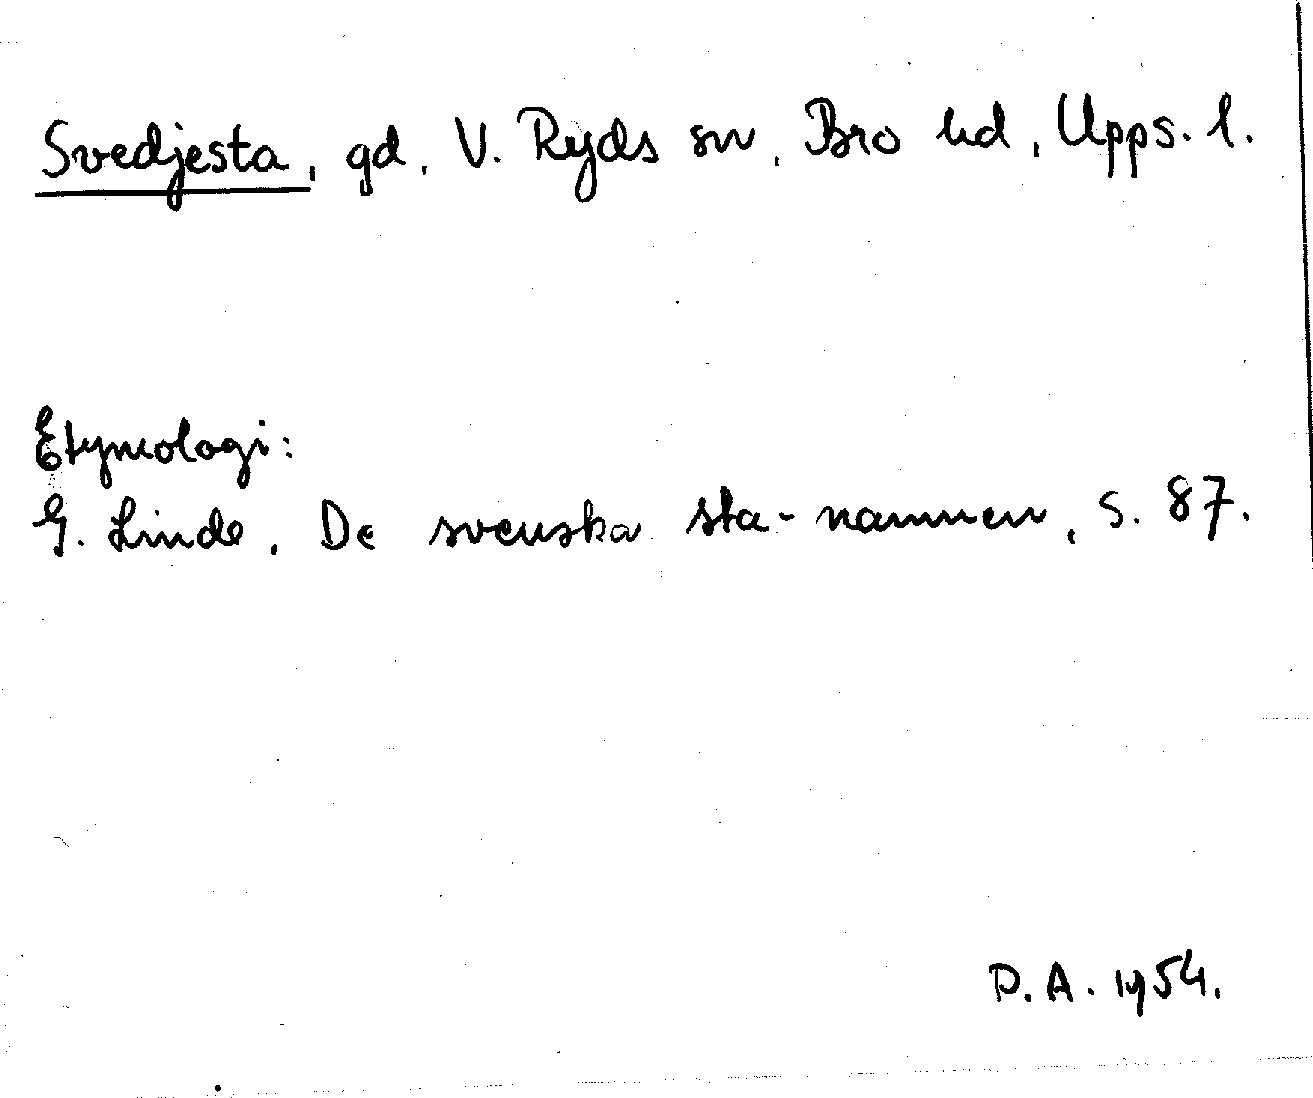 Svedjesta, gd, V. Ryds sn, Bro hd, Upps. l.
Etymologi:
G. Linde, De svenska sta-namnen, s. 87.
D. A. 1954.